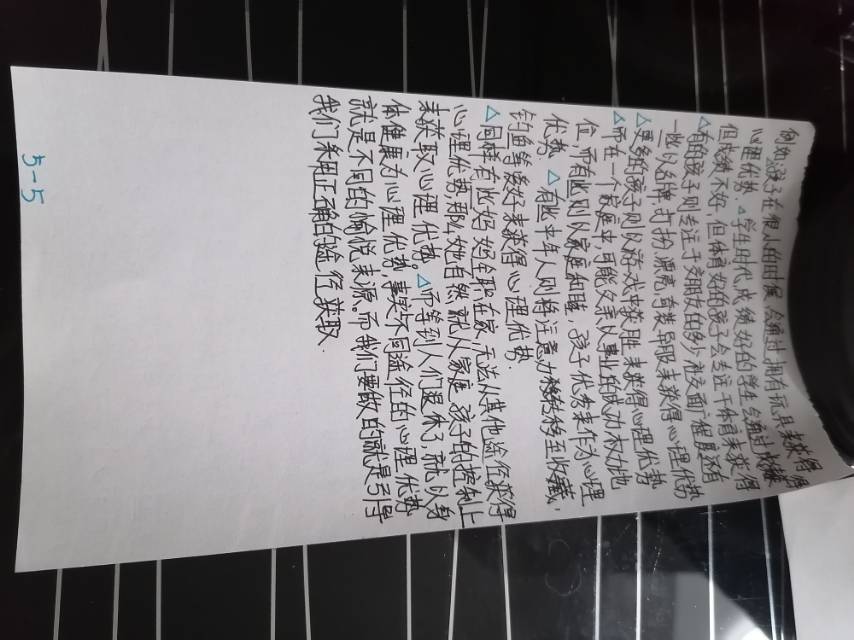 例如,孩子在很小的时候,会通过拥有玩具来获得
心理优势.△学生时代,成绩好的学生会通过成绩获得
但成绩不好,但体育好的孩子会专注于体育来获得
△有的孩子则专注于交朋友的多少,社交面广
一些以名牌,打扮漂亮,奇装异服来获得心理优势
△更多的孩子则从游戏中获胜来获得心理优势
△而在一个家庭中,可能父亲以事业的成功,权力地
位,而有些则以家庭和睦,孩子优秀来作为心理
优势.△有些中年人则将注意力转移至收藏,
钓鱼等爱好来获得心理优势.
△同样有些妈妈全职在家,无法从其他途径获得
心理优势,那么她自然就从家庭,孩子的控制上
来获取心理优势.△而等到人们退休了,就以身
体健康为心理优势,事实不同途径的心理优势
就是不同的愉悦来源。而我们要做的就是引导
我们采用正确的途径获取.
5-5